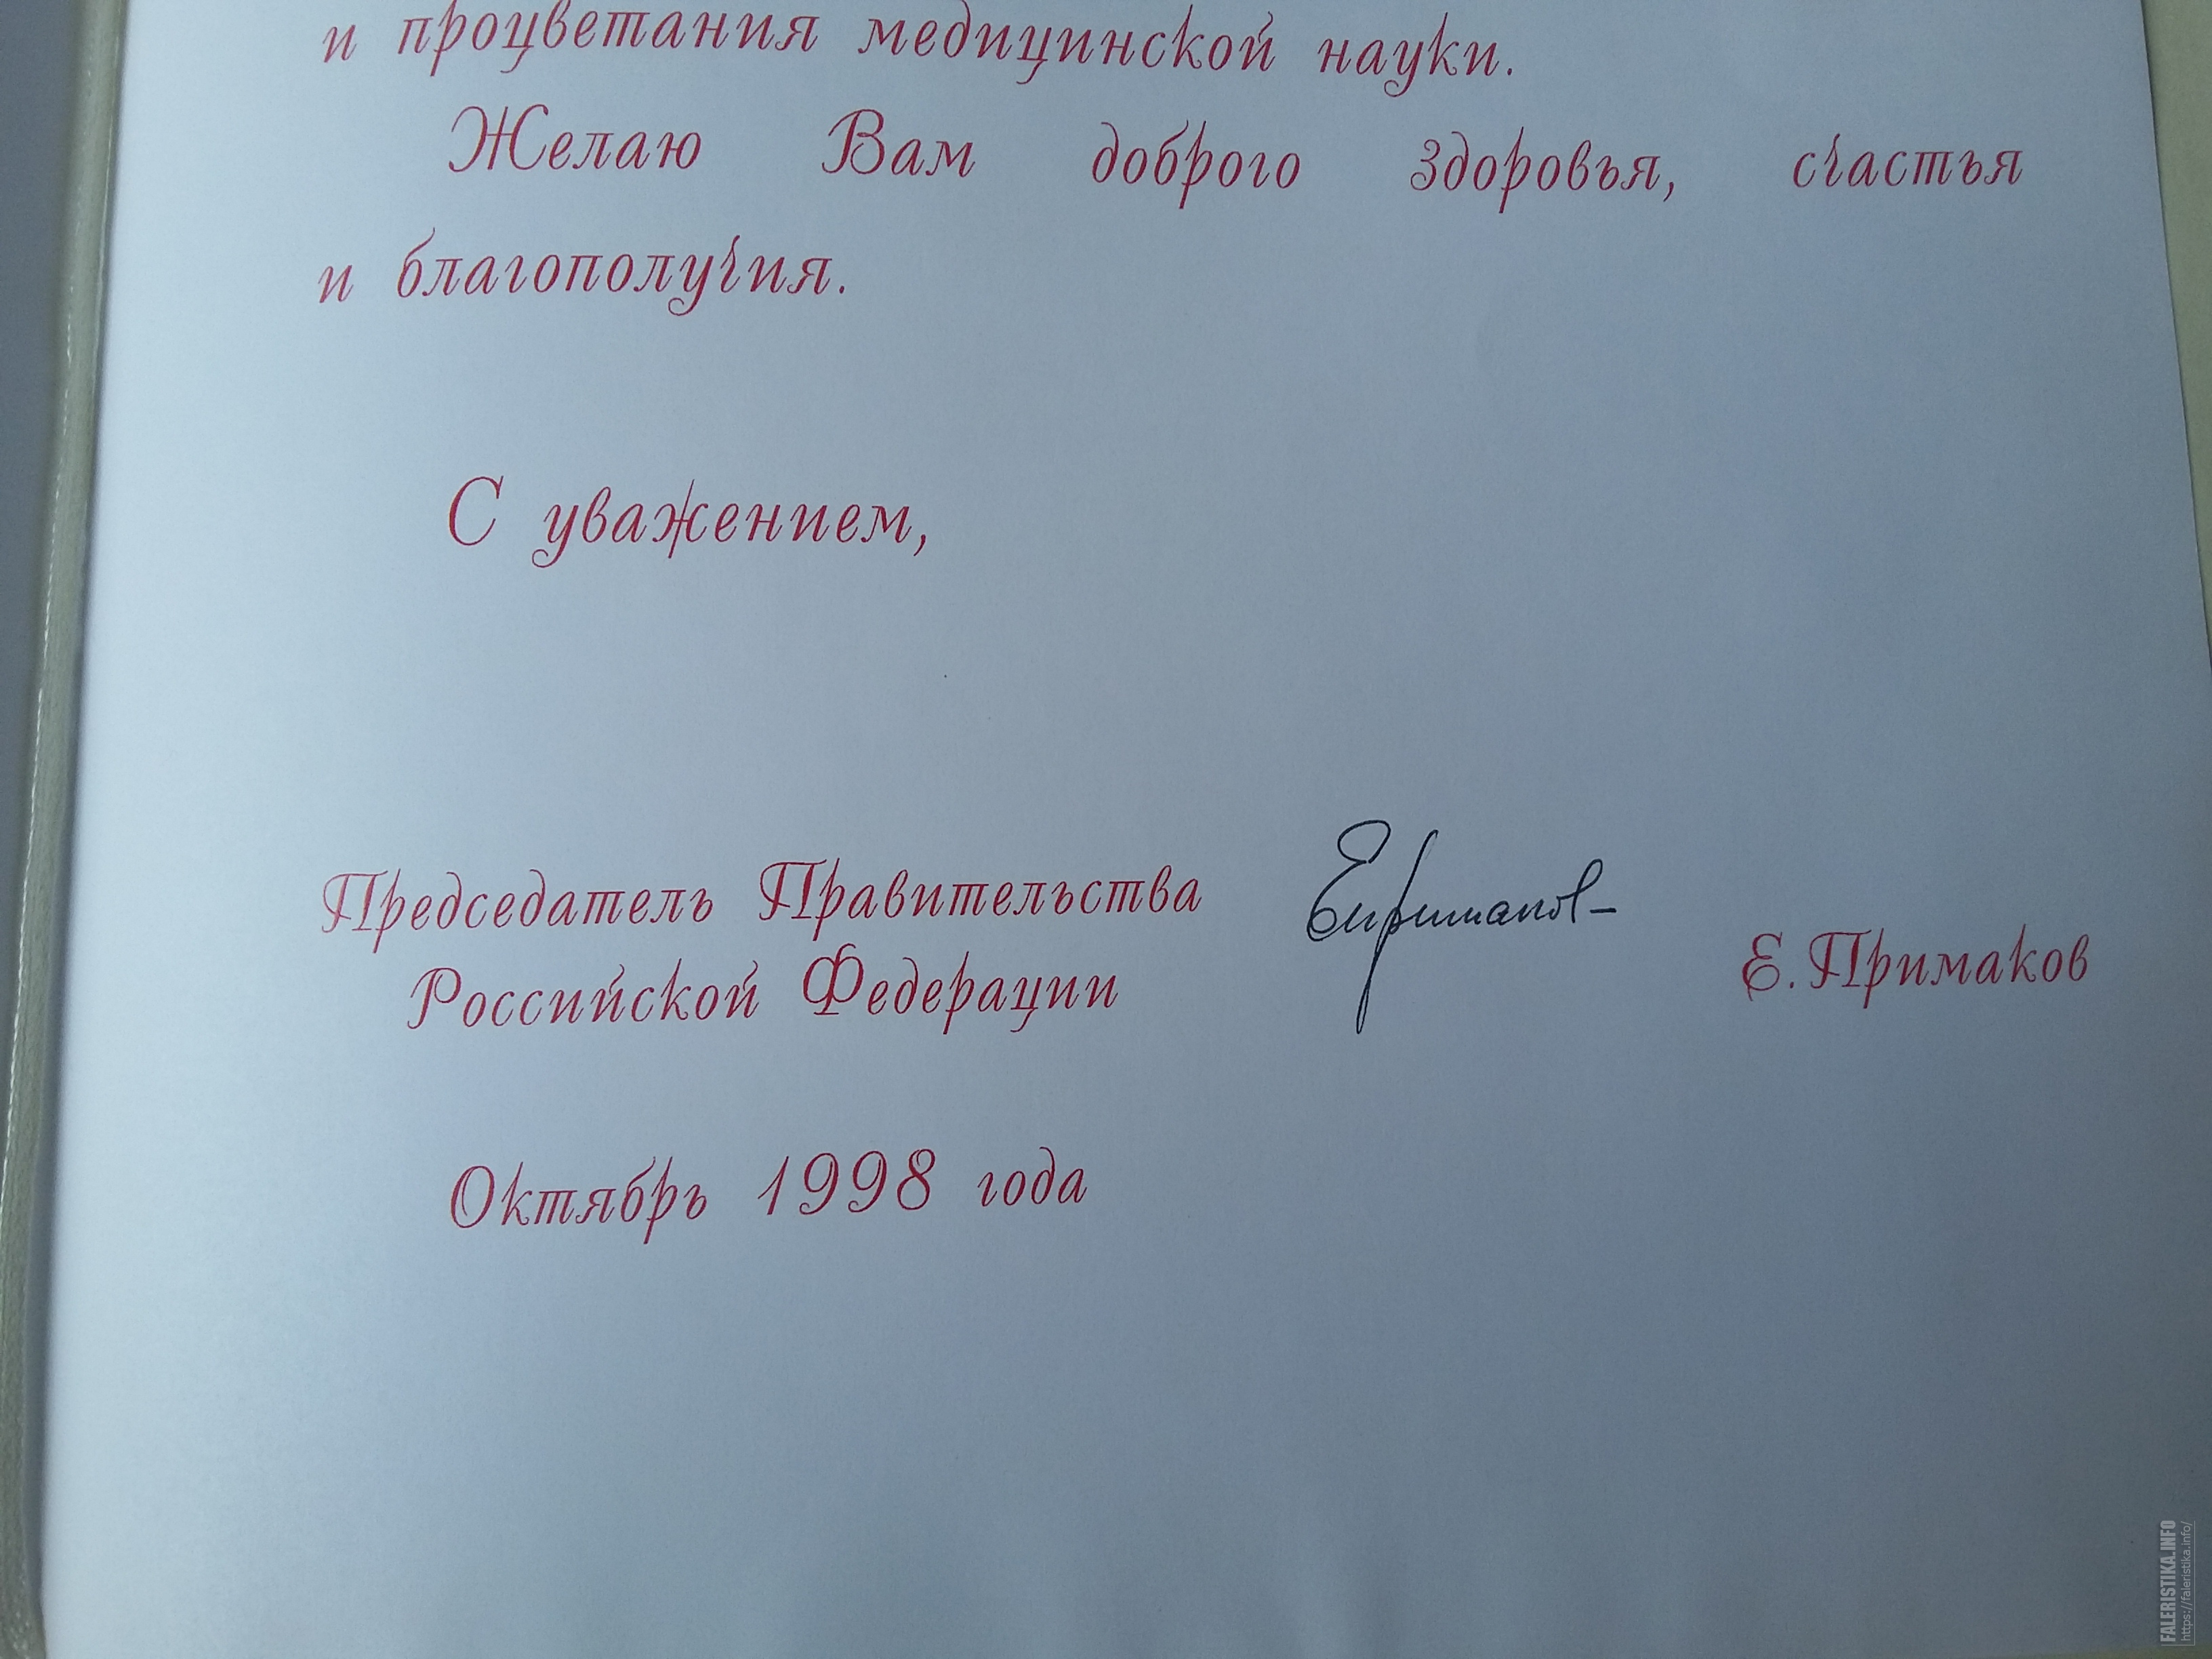 и процветания медицинской науки.
Желаю Вам доброго здоровья, счастья
и благополучия.
С уважением,
Председатель Правительства
Российской Федерации
ЕПримаков
Е. Примаков
Октябрь 1998 года
FALERISTIKA.INFO
https://faleristika.info/